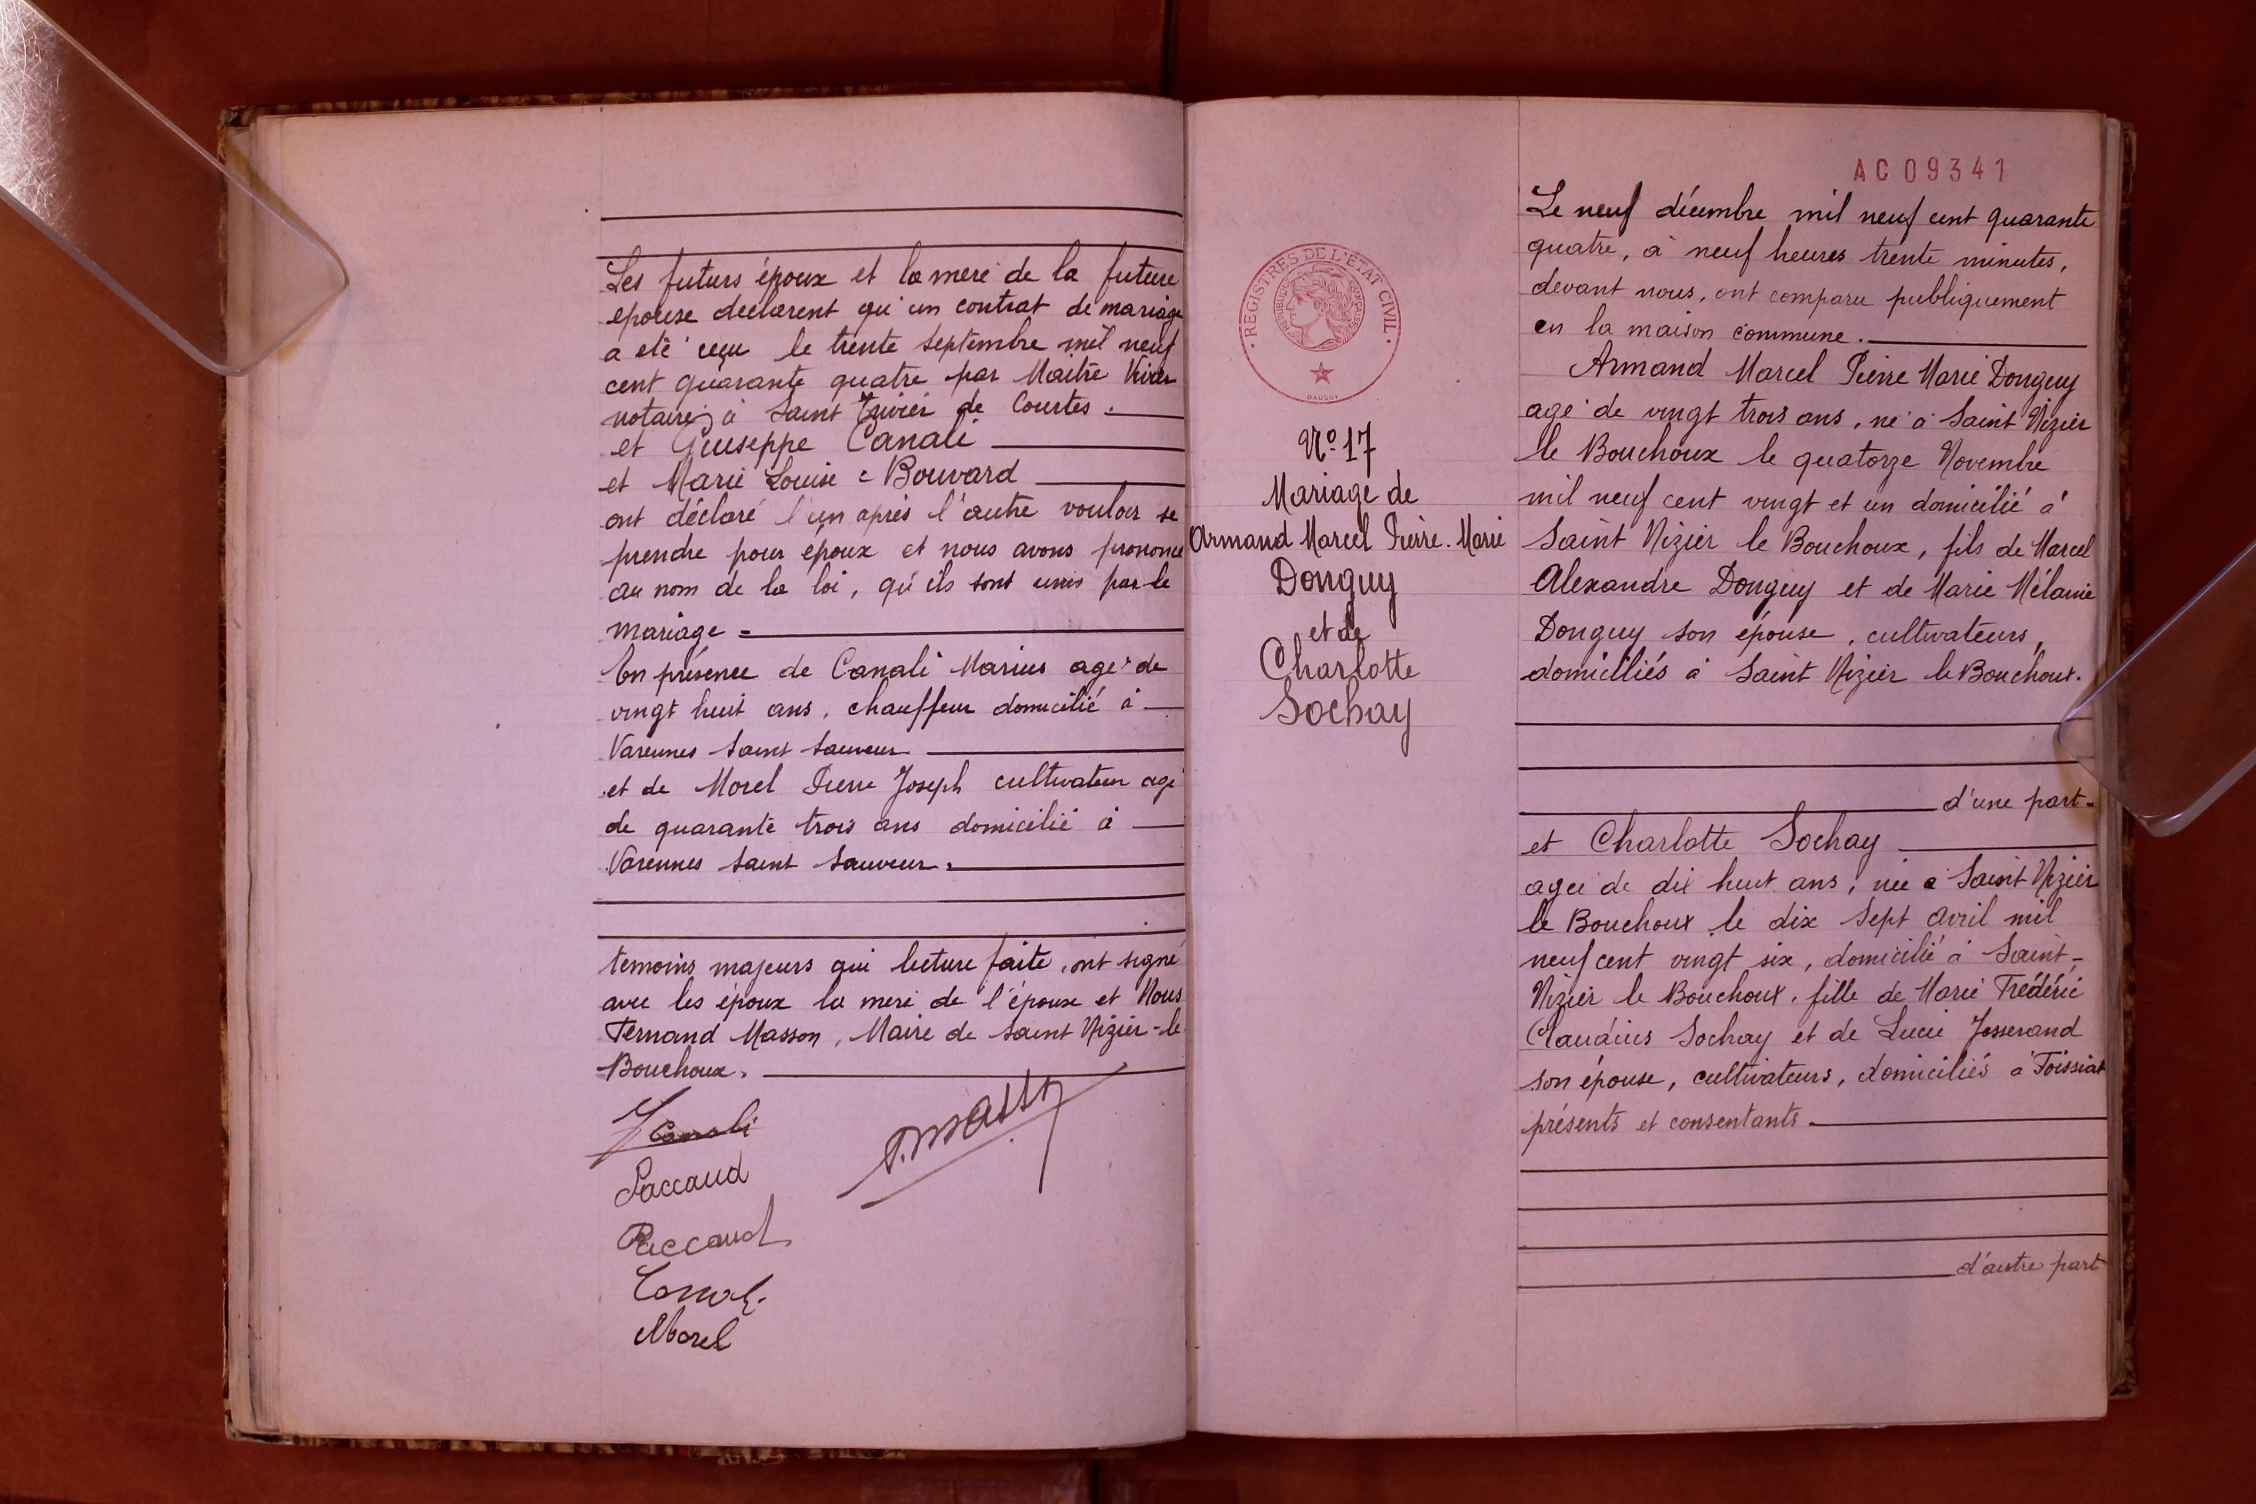 Les futurs époux et la mere de la future
epouse declarent qu'un contrat de mariage
a eté reçu le trente septembre mil neuf
cent quarante quatre par Maitre
notaire à Saint Trivier de Courtes.
et Giuseppe Canali
et Marie Louise Bouvard
ont déclaré l'un après l'autre vouloir se
prendre pour époux et nous avons prononcé
au nom de la loi, qu'ils sont unis par le
mariage
En présence de Canali Marius agé de
vingt huit ans, chauffeur domicilié à
Varennes Saint Sauveur
et de Morel Pierre Joseph cultivateur agé
de quarante trois ans domicilié à
Varennes Saint Sauveur.
temoins majeurs qui lecture faite, ont signé
avec les époux la mere de l'épouse et Nous
Fernand Masson, Maire de Saint Nizier-le
Bouchoux.
Canali
Paccaud
Paccaud
Morel
REGISTRES DE L'ETAT CIVIL
N° 17
Mariage de
Armand Marcel Pierre. Marie
Donguy
et de
Charlotte
Sochay
AC 09341
Le neuf décembre mil neuf cent quarante
quatre, à neuf heures trente minutes,
devant nous, ont comparu publiquement
en la maison commune.
Armand Marcel Pierre Marie Donguy
agé de vingt trois ans, né à Saint Nizier
le Bouchoux le quatorze Novembre
mil neuf cent vingt et un domicilié à
Saint Nizier le Bouchoux, fils de Marcel
Alexandre Donguy et de Marie Mélanie
Donguy son épouse, cultivateurs,
domiciliés à Saint Nizier le Bouchoux.
d'une part.
et Charlotte Sochay
agée de dix huit ans, née à Saint Nizier
le Bouchoux le dix sept avril mil
neuf cent vingt six, domicilié à Saint-
Nizier le Bouchoux, fille de Marie Frédéric
Claudius Sochay et de Lucie Josserand
son épouse, cultivateurs, domiciliés à Foissiat
présents et consentants.
d'autre part